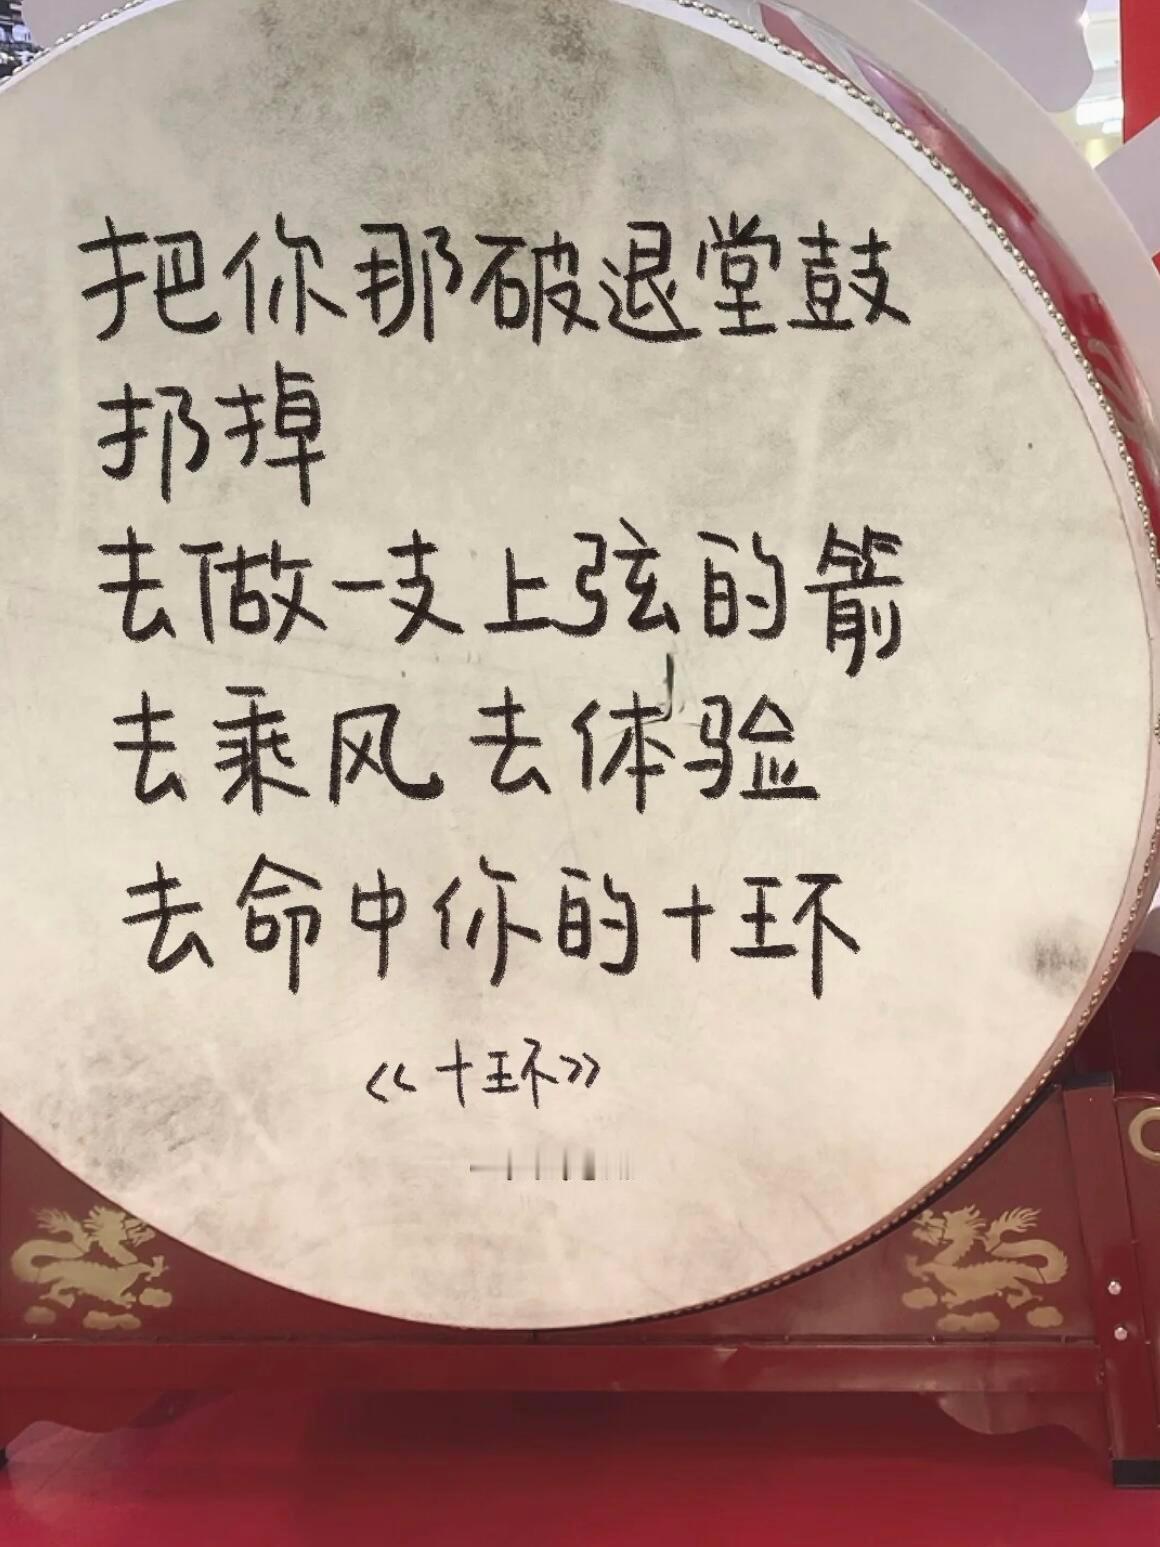 把你那破退堂鼓
扔掉
去做一支上弦的箭
去乘风 去体验
去命中你的十环
《十环》